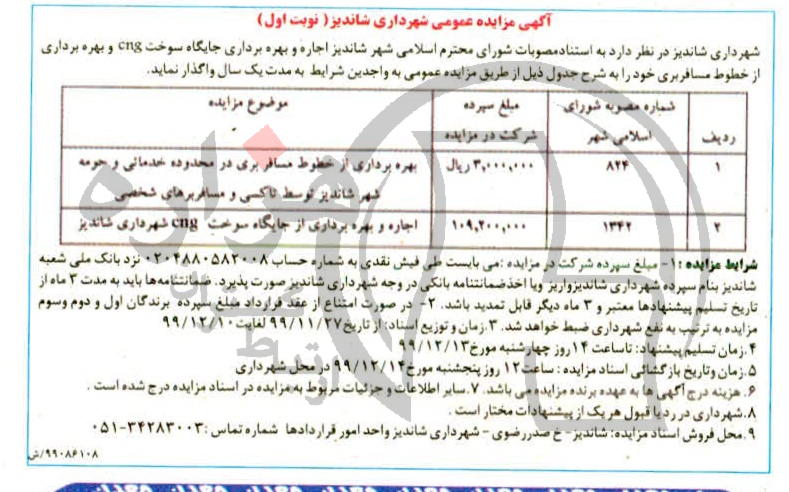 آگهی مزایده عمومی شهرداری شاندیز( نوبت اول)
شهرداری شاندیز در نظر دارد به استنادمصوبات شورای محترم اسلامی شهر شاندیز اجاره و بهره برداری جایگاه سوخت cng و بهره برداری
از خطوط مسافربری خود را به شرح جدول ذیل از طریق مزایده عمومی به واجدین شرایط به مدت یک سال واگذار نماید.
ردیف شماره مصوبه شورای اسلامی شهر مبلغ سپرده شرکت در مزایده موضوع مزایده
۱ ۸۲۴ ۳,۰۰۰,۰۰۰ ریال بهره برداری از خطوط مسافربری در محدوده خدماتی و حومه
شهر شاندیز توسط تاکسی و مسافربرهای شخصی
۲ ۱۳۴۲ ۱۰۹,۲۰۰,۰۰۰ اجاره و بهره برداری از جایگاه سوخت cng شهرداری شاندیز
شرایط مزایده :۱- مبلغ سپرده شرکت در مزایده :می بایست طی فیش نقدی به شماره حساب ۰۲۰۴۸۸۰۵۸۲۰۰۸ نزد بانک ملی شعبه
شاندیز بنام سپرده شهرداری شاندیزواریز ویا اخذضمانتنامه بانکی در وجه شهرداری شاندیز صورت پذیرد. ضمانتنامه‌ها باید به مدت ۳ ماه از
تاریخ تسلیم پیشنهادها معتبر و ۳ ماه دیگر قابل تمدید باشد. ۲- در صورت امتناع از عقد قرارداد مبلغ سپرده برندگان اول و دوم وسوم
مزایده به ترتیب به نفع شهرداری ضبط خواهد شد. ۳.زمان و توزیع اسناد: از تاریخ ۹۹/۱۱/۲۷ لغایت ۹۹/۱۲/۱۰
۴.زمان تسلیم پیشنهاد: تاساعت ۱۴ روز چهارشنبه مورخ ۹۹/۱۲/۱۳
۵.زمان وتاریخ بازگشائی اسناد مزایده : ساعت ۱۲ روز پنجشنبه مورخ ۹۹/۱۲/۱۴ در محل شهرداری
۶. هزینه درج آگهی ها به عهده برنده مزایده می باشد. ۷.سایر اطلاعات و جزئیات مربوط به مزایده در اسناد مزایده درج شده است .
۸.شهرداری در رد یا قبول هر یک از پیشنهادات مختار است .
۹.محل فروش اسناد مزایده: شاندیز- خ صدررضوی - شهرداری شاندیز واحد امور قراردادها شماره تماس :۳۴۲۸۳۰۰۳-۰۵۱
۹۹۰۸۶۱۰۸/ش
هزاره